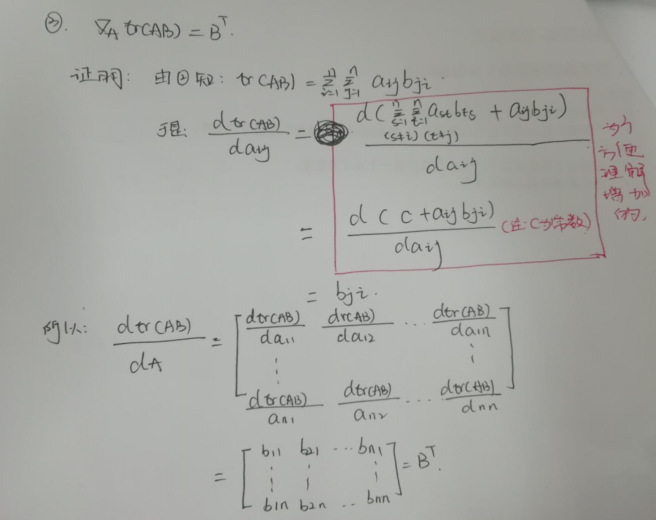 ②. ∇_A tr(AB) = B^T.
证明: 由①知: tr(AB) = Σ_{i=1}^{n} Σ_{j=1}^{n} a_{ij}b_{ji}.
于是: \frac{dtr(AB)}{da_{ij}} = \frac{d(Σ_{s=1}^{n} Σ_{t=1}^{n} a_{st}b_{ts} + a_{ij}b_{ji})}{da_{ij}}
(s≠i) (t≠j)
= \frac{d(C + a_{ij}b_{ji})}{da_{ij}} (注: C为常数)
为了
方便
理解
增加
的.
= b_{ji}.
所以: \frac{dtr(AB)}{dA} = [ \frac{dtr(AB)}{da_{11}} \frac{dr(AB)}{da_{12}} ... \frac{dtr(AB)}{da_{1n}}
⋮ ⋮
\frac{dtr(AB)}{a_{n1}} \frac{dtr(AB)}{a_{n2}} ... \frac{dtr(AB)}{d_{nn}} ]
= [ b_{11} b_{21} ... b_{n1}
⋮ ⋮ ⋮
b_{1n} b_{2n} .. b_{nn} ] = B^T.